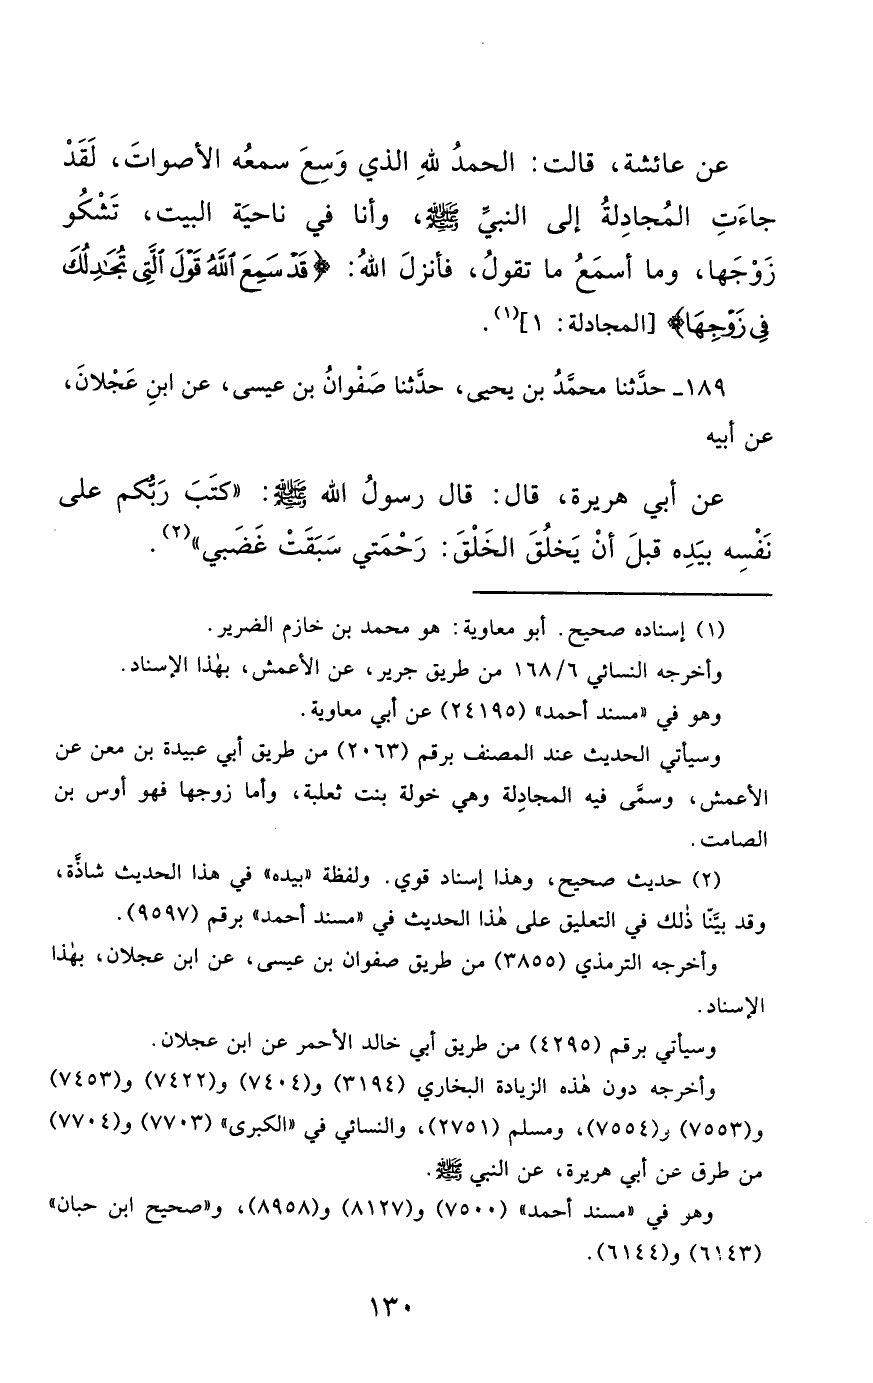 عن عائشة، قالت: الحمدُ للهِ الذي وَسِعَ سمعُه الأصواتَ، لَقَدْ
جاءَتِ المُجادِلةُ إلى النبيِّ ﷺ، وأنا في ناحيَة البيت، تَشْكُو
زَوْجَها، وما أسمَعُ ما تقولُ، فأنزلَ اللهُ: ﴿قَدْ سَمِعَ ٱللَّهُ قَوْلَ ٱلَّتِى تُجَٰدِلُكَ
فِى زَوْجِهَا﴾ [المجادلة: ١](١).
١٨٩ـ حدَّثنا محمَّدُ بن يحيى، حدَّثنا صَفْوانُ بن عيسى، عن ابنِ عَجْلانَ،
عن أبيه
عن أبي هريرة، قال: قال رسولُ الله ﷺ: «كتَبَ رَبُّكم على
نَفْسِه بيَدِه قبلَ أنْ يَخلُقَ الخَلْقَ: رَحْمَتي سَبَقَتْ غَضَبي»(٢).
(١) إسناده صحيح. أبو معاوية: هو محمد بن خازم الضرير.
وأخرجه النسائي ١٦٨/٦ من طريق جرير، عن الأعمش، بهٰذا الإسناد.
وهو في «مسند أحمد» (٢٤١٩٥) عن أبي معاوية.
وسيأتي الحديث عند المصنف برقم (٢٠٦٣) من طريق أبي عبيدة بن معن عن
الأعمش، وسمَّى فيه المجادِلة وهي خولة بنت ثعلبة، وأما زوجها فهو أوس بن
الصامت.
(٢) حديث صحيح، وهذا إسناد قوي. ولفظة «بيده» في هذا الحديث شاذَّة،
وقد بيَّنّا ذٰلك في التعليق على هٰذا الحديث في «مسند أحمد» برقم (٩٥٩٧).
وأخرجه الترمذي (٣٨٥٥) من طريق صفوان بن عيسى، عن ابن عجلان، بهٰذا
الإسناد.
وسيأتي برقم (٤٢٩٥) من طريق أبي خالد الأحمر عن ابن عجلان.
وأخرجه دون هٰذه الزيادة البخاري (٣١٩٤) و(٧٤٠٤) و(٧٤٢٢) و(٧٤٥٣)
و(٧٥٥٣) و(٧٥٥٤)، ومسلم (٢٧٥١)، والنسائي في «الكبرى» (٧٧٠٣) و(٧٧٠٤)
من طرق عن أبي هريرة، عن النبي ﷺ.
وهو في «مسند أحمد» (٧٥٠٠) و(٨١٢٧) و(٨٩٥٨)، و«صحيح ابن حبان»
(٦١٤٣) و(٦١٤٤).
١٣٠